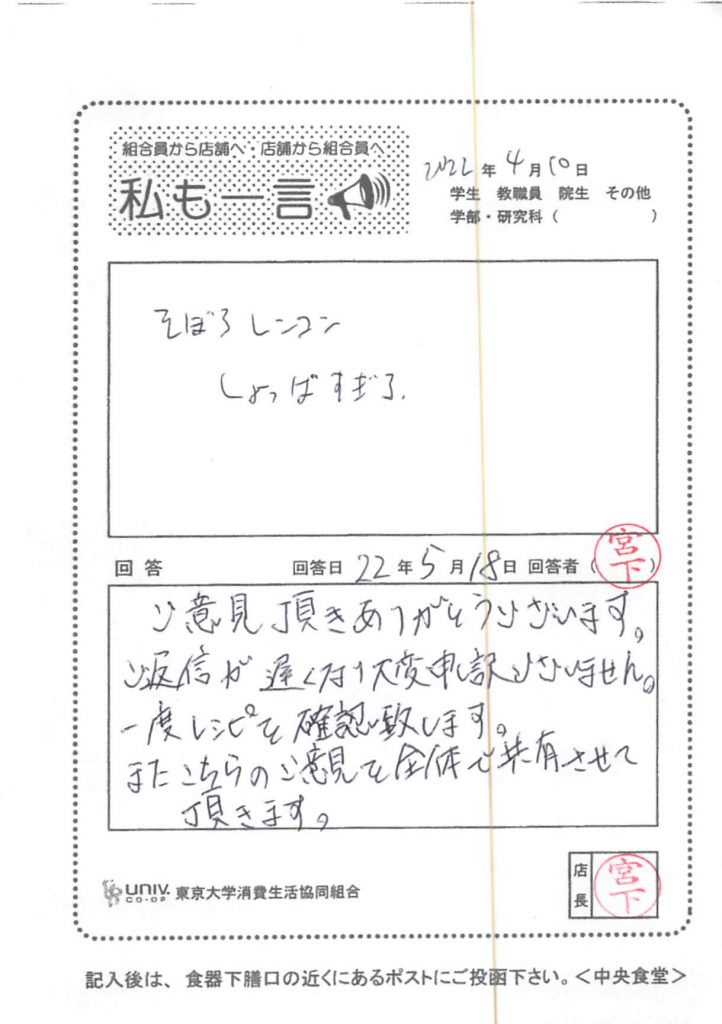 組合員から店舗へ 店舗から組合員へ
私も一言
2022年4月10日
学生 教職員 院生 その他
学部・研究科（ ）
そぼろレンコン
しょっぱすぎる。
回答 回答日 22年5月18日 回答者（宮下）
ご意見頂きありがとうございます。
ご返信が遅くなり大変申し訳ございません。
一度レシピを確認致します。
またこちらのご意見を全体で共有させて
頂きます。
UNIV. CO-OP 東京大学消費生活協同組合
店長 宮下
記入後は、食器下膳口の近くにあるポストにご投函下さい。＜中央食堂＞